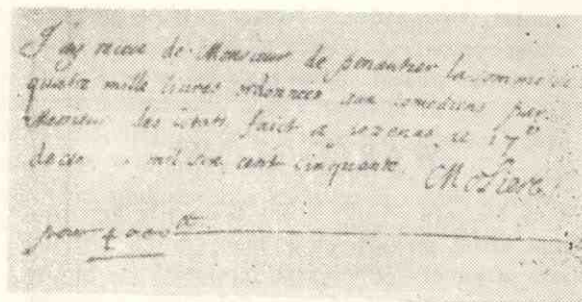 J'ay receu de Monsieur de penautier la somme de
quatre mille liures ordonnees aux comediens par
Messieurs des Estats faict a pezenas ce 17
decem mil six cent cinquante Moliere
pour 4000